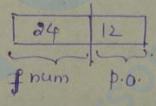 24 12
f num p.o.